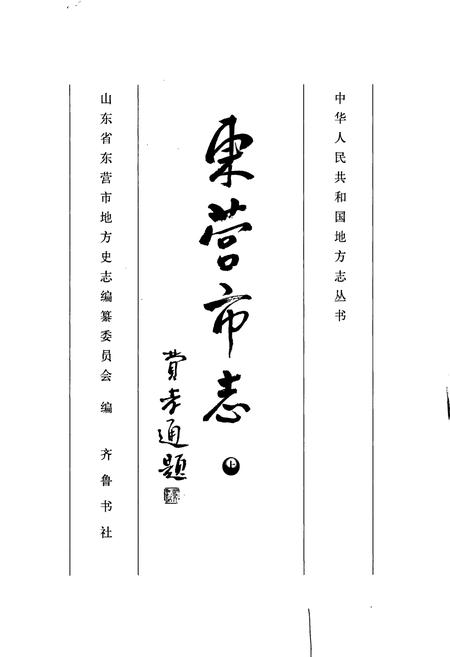 中华人民共和国地方志丛书
東营市志
上
费孝通題
山东省东营市地方史志编纂委员会 编 齐鲁书社